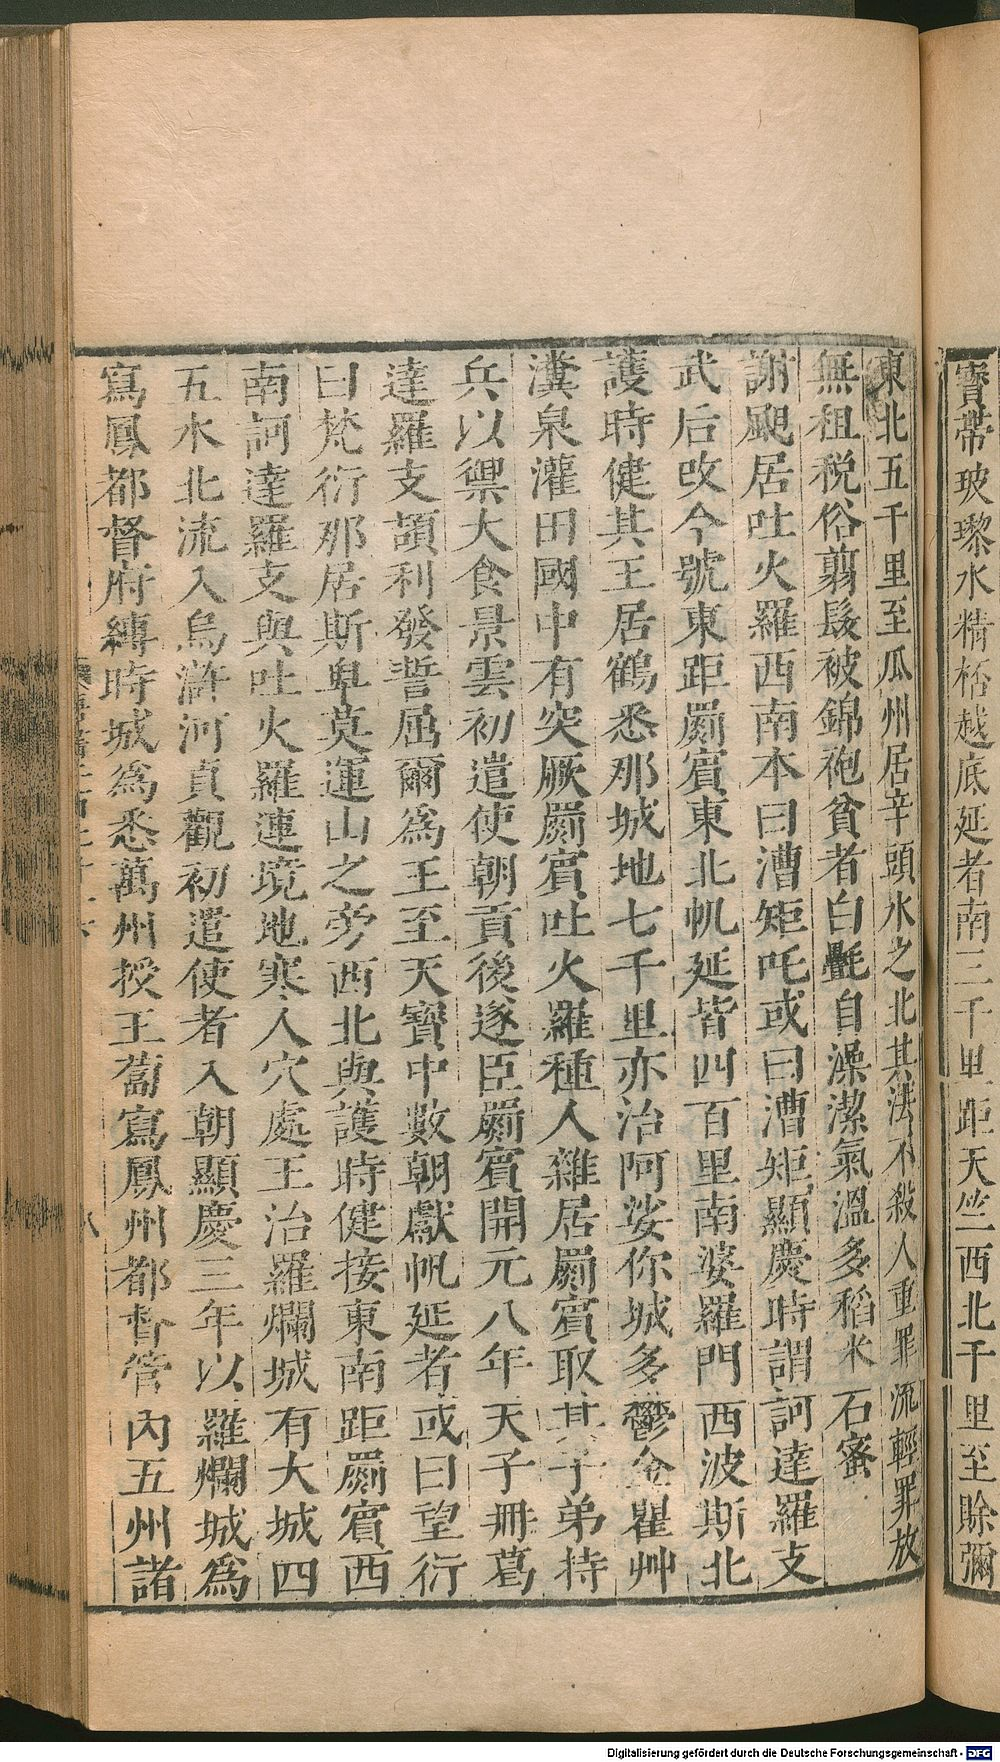 寶帶玻瓈水精桮越底延者南三千里距天竺西北千里至賒彌
東北五千里至瓜州居辛頭水之北其法不殺人重罪流輕罪放
無租稅俗翦髮被錦袍貧者白氎自澡潔氣溫多稻米石蜜
謝䫻居吐火羅西南本曰漕矩吒或曰漕矩顯慶時謂訶達羅支
武后改今號東距罽賓東北帆延皆四百里南婆羅門西波斯北
護時健其王居鶴悉那城地七千里亦治阿娑你城多鬱金瞿艸
瀵泉灌田國中有突厥罽賓吐火羅種人雜居罽賓取其子弟持
兵以禦大食景雲初遣使朝貢後遂臣罽賓開元八年天子冊葛
達羅支頡利發誓屈爾為王至天寶中數朝獻帆延者或曰望衍
曰梵衍那居斯卑莫運山之旁西北與護時健接東南距罽賓西
南訶達羅支與吐火羅連境地寒人穴處王治羅爛城有大城四
五水北流入烏滸河貞觀初遣使者入朝顯慶三年以羅爛城為
寫鳳都督府縛時城為悉萬州授王䓤寫鳳州都督管內五州諸
八
Digitalisierung gefördert durch die Deutsche Forschungsgemeinschaft - DFG